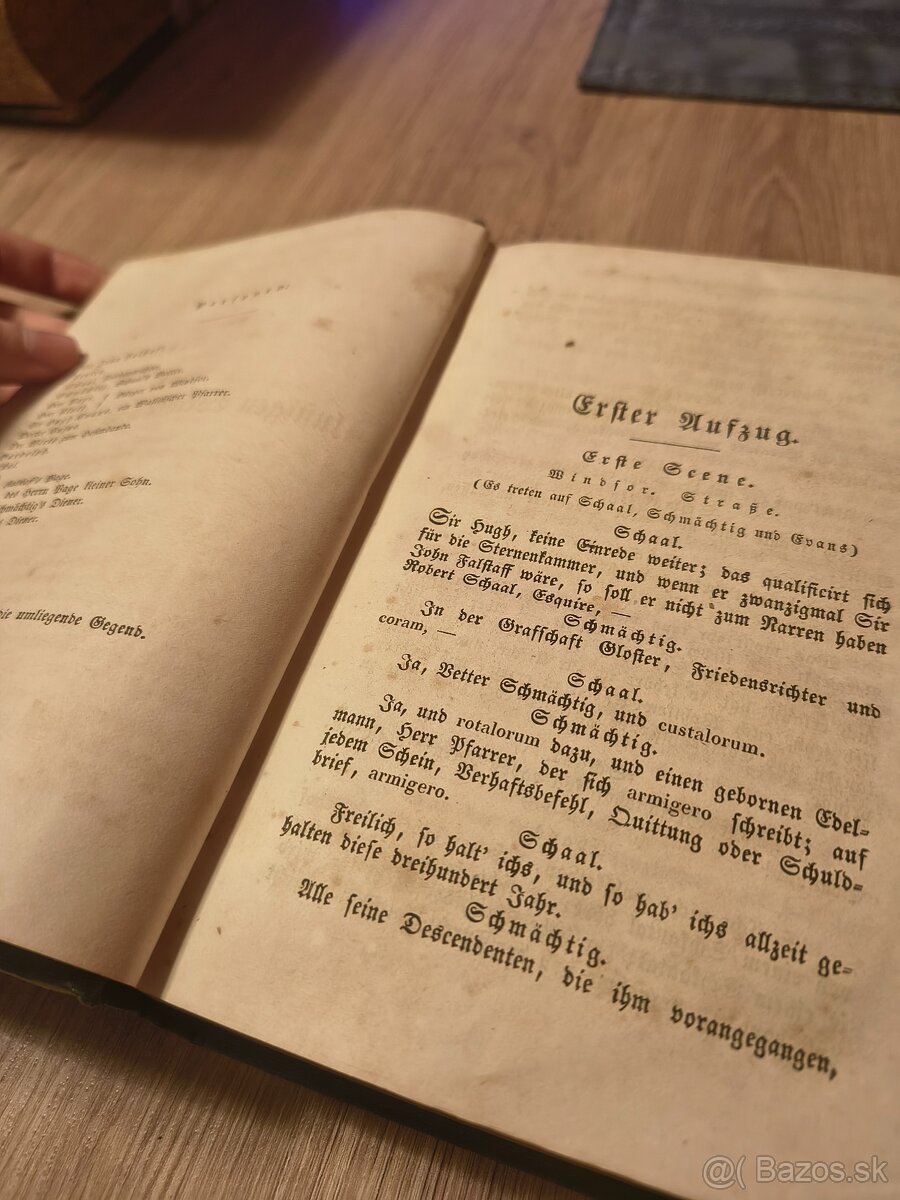 Personen.
Pfarrer.
des Herrn Page kleiner Sohn.
Diener.
Diener.
die umliegende Gegend.
Erster Aufzug.
Erste Scene.
Windsor. Straße.
(Es treten auf Schaal, Schmächtig und Evans)
Schaal.
Sir Hugh, keine Einrede weiter; das qualificirt sich
für die Sternenkammer, und wenn er zwanzigmal Sir
John Falstaff wäre, so soll er nicht zum Narren haben
Robert Schaal, Esquire, —
Schmächtig.
In der Grafschaft Gloster, Friedensrichter und
coram, —
Schaal.
Ja, Vetter Schmächtig, und custalorum.
Schmächtig.
Ja, und rotalorum dazu, und einen gebornen Edel=
mann, Herr Pfarrer, der sich armigero schreibt; auf
jedem Schein, Verhaftsbefehl, Quittung oder Schuld=
brief, armigero.
Schaal.
Freilich, so halt' ichs, und so hab' ichs allzeit ge=
halten diese dreihundert Jahr.
Schmächtig.
Alle seine Descendenten, die ihm vorangegangen,
@( Bazos.sk